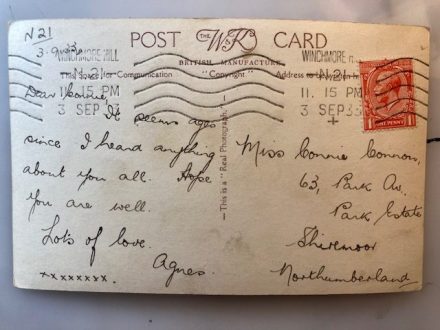 N 21
3-9-33
POST THE W&K CARD
BRITISH MANUFACTURE
This Space for Communication "Copyright" Address to be written
WINCHMORE HILL
N.21
11. 15 PM
3 SEP 33
WINCHMORE
N.21
11. 15 PM
3 SEP 33
+
ONE PENNY
—This is a "Real Photograph."—
Dear Connie,
It seems ages
since I heard anything
about you all. Hope
you are well.
Lots of love.
Agnes.
xxxxxxxx.
Miss Connie Connors,
63, Park Av.
Park Estate
Shiremoor
Northumberland